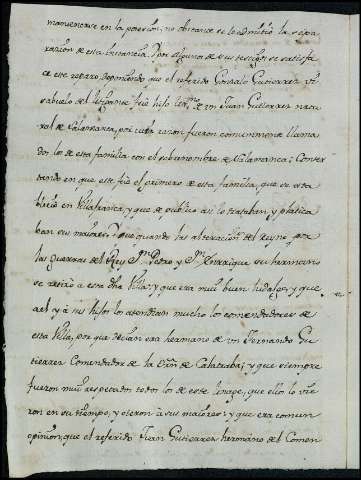 mantenerse en la posesion, no obstante se le admitio la repa-
razion de esta instancia. Y por algunos de sus testigos se satisfa-
ce este reparo deponiendo que el referido Gonzalo Gutierrez
abuelo del litigante fue hijo lexmo de un Juan Gutierrez natu
ral de Salamanca, por cuia razon fueron comunmente llama
dos los de esta familia con el sobrenombre de Salamanca; Contes
tando en que este fue el primero de esta familia, que se esta
blecio en Villafranca, y que de publico asi lo trataban y platica
ban sus maiores: Y que quando las alteraciones del Reyno por
las guerras del Rey Dn Pedro y Dn Henrrique su hermano
se retiro a esta dha Villa: y que era mui buen hidalgo, y que
a el y à sus hijos los atendian mucho los comendadores de
esta Villa, por que decian era hermano de un Fernando Gu
tierrez Comendador de la Orn de Calatraba; y que siempre
fueron mui respetados todos los de este linage, que ellos lo vie
ron en su tiempo, y oieron à sus maiores: y que era comun
opinion, que el referido Juan Gutierrez hermano del Comen